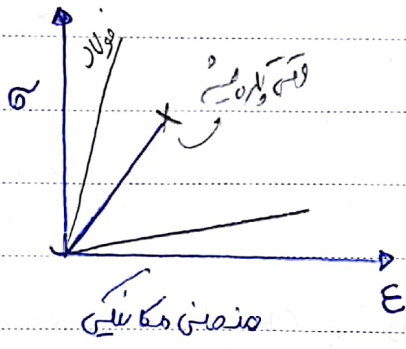 فولاد
σ
وقتی پاره میشه
ε
منحنی مکانیکی